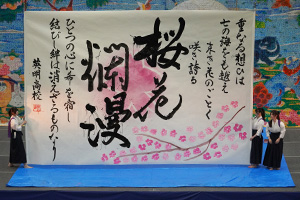 重なる想ひは
七の海をも越え
木々花のごとく
咲き誇る
桜花
爛漫
ひとつの心に希を宿し
結び絆は消えぞらものなり
英明高校